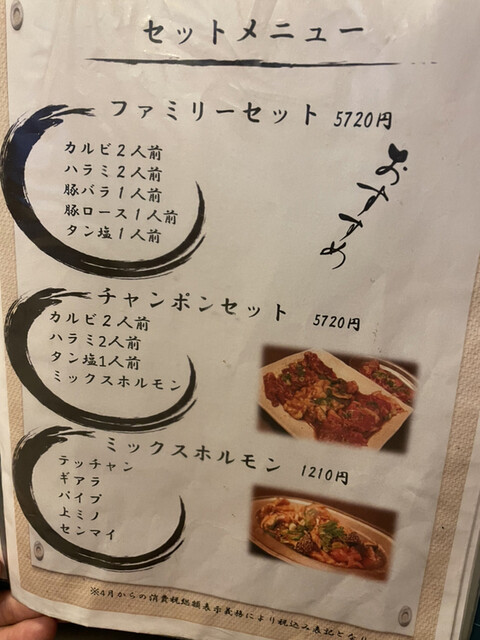 セットメニュー
ファミリーセット 5720円
カルビ2人前
ハラミ2人前
豚バラ1人前
豚ロース1人前
タン塩1人前
おすすめ
チャンポンセット 5720円
カルビ2人前
ハラミ2人前
タン塩1人前
ミックスホルモン
ミックスホルモン 1210円
テッチャン
ギアラ
パイプ
上ミノ
センマイ
※4月からの消費税総額表示義務により税込み表記となり